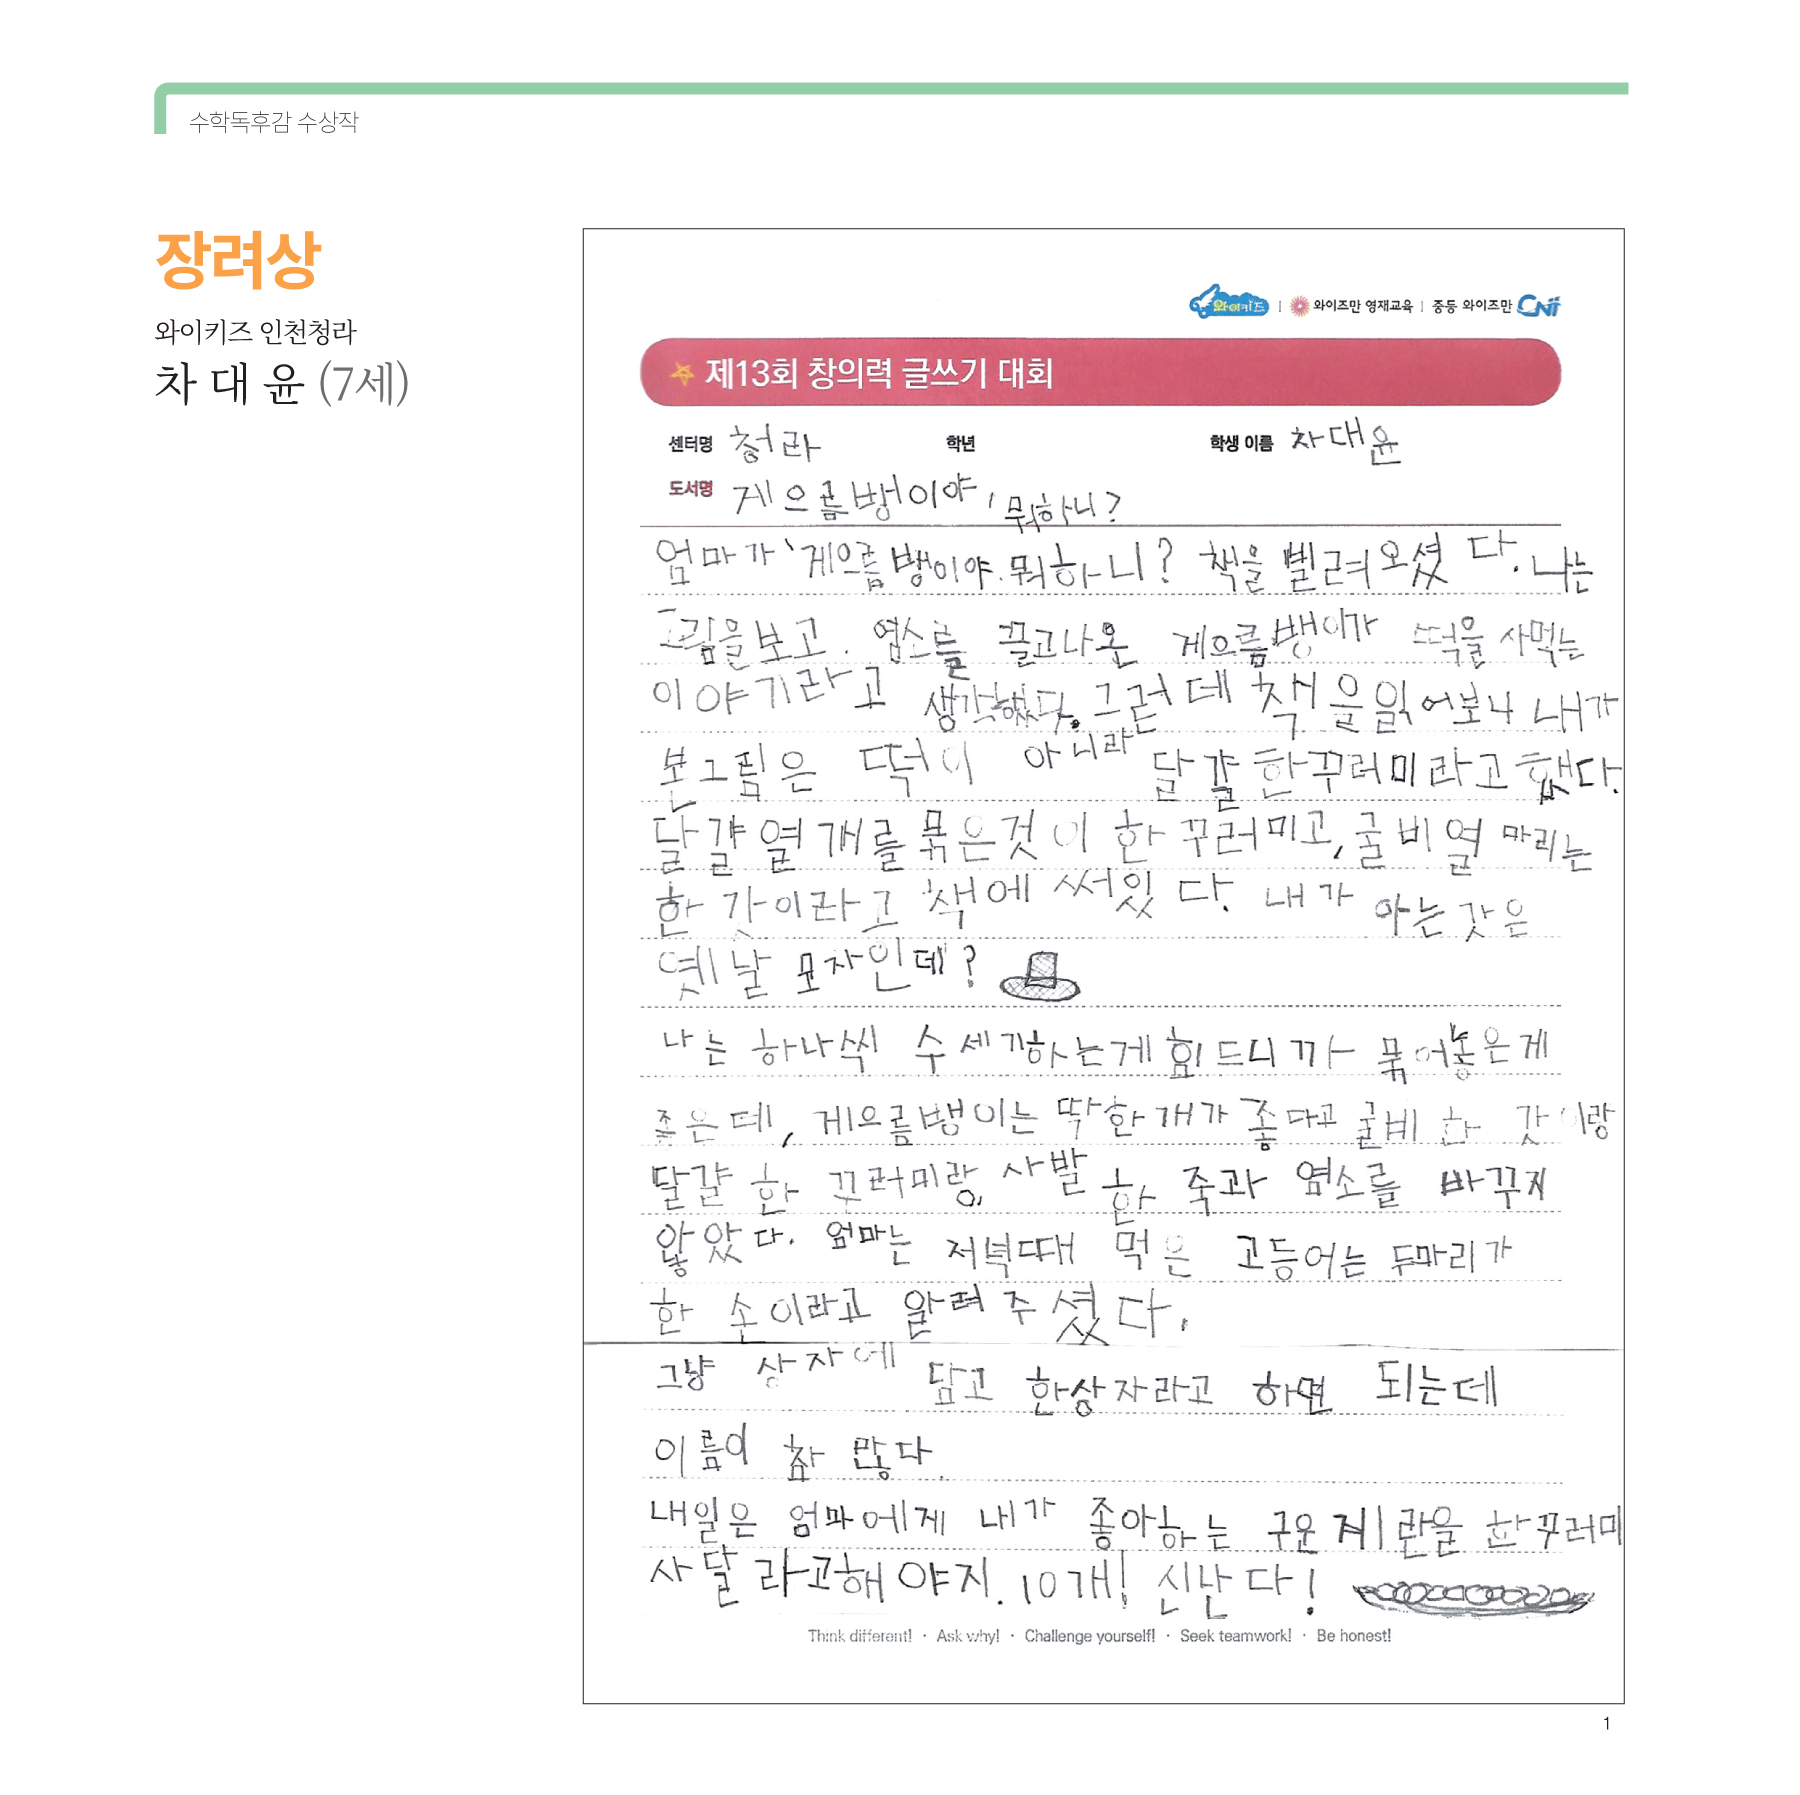 수학독후감 수상작
장려상
와이키즈 인천청라
차 대 윤 (7세)
와이키즈 | 와이즈만 영재교육 | 중등 와이즈만 CNI
제13회 창의력 글쓰기 대회
센터명 청라 학년 학생 이름 차대윤
도서명 게으름뱅이야, 뭐하니?
엄마가 '게으름뱅이야. 뭐하니? 책을 빌려오셨다. 나는
그림을보고. 염소를 끌고나온 게으름뱅이가 떡을 사먹는
이야기라고 생각했다. 그런데 책을읽어보니 내가
본그림은 떡이 아니라 달걀 한꾸러미라고 했다.
달걀 열개를 묶은것이 한 꾸러미고, 굴비 열 마리는
한 갓이라고 책에 써있다. 내가 아는 갓은
옛날 모자인데?
나는 하나씩 수 세기하는게 힘드니까 묶어놓은게
좋은데, 게으름뱅이는 딱 한개가 좋다고 굴비 한 갓이랑
달걀 한 꾸러미랑, 사발 한 죽과 염소를 바꾸지
않았다. 엄마는 저녁때 먹은 고등어는 두마리가
한 손이라고 알려주셨다.
그냥 상자에 담고 한상자라고 하면 되는데
이름이 참 많다.
내일은 엄마에게 내가 좋아하는 구운 계란을 한꾸러미
사달라고해야지. 10개! 신난다!
Think different! · Ask why! · Challenge yourself! · Seek teamwork! · Be honest!
1